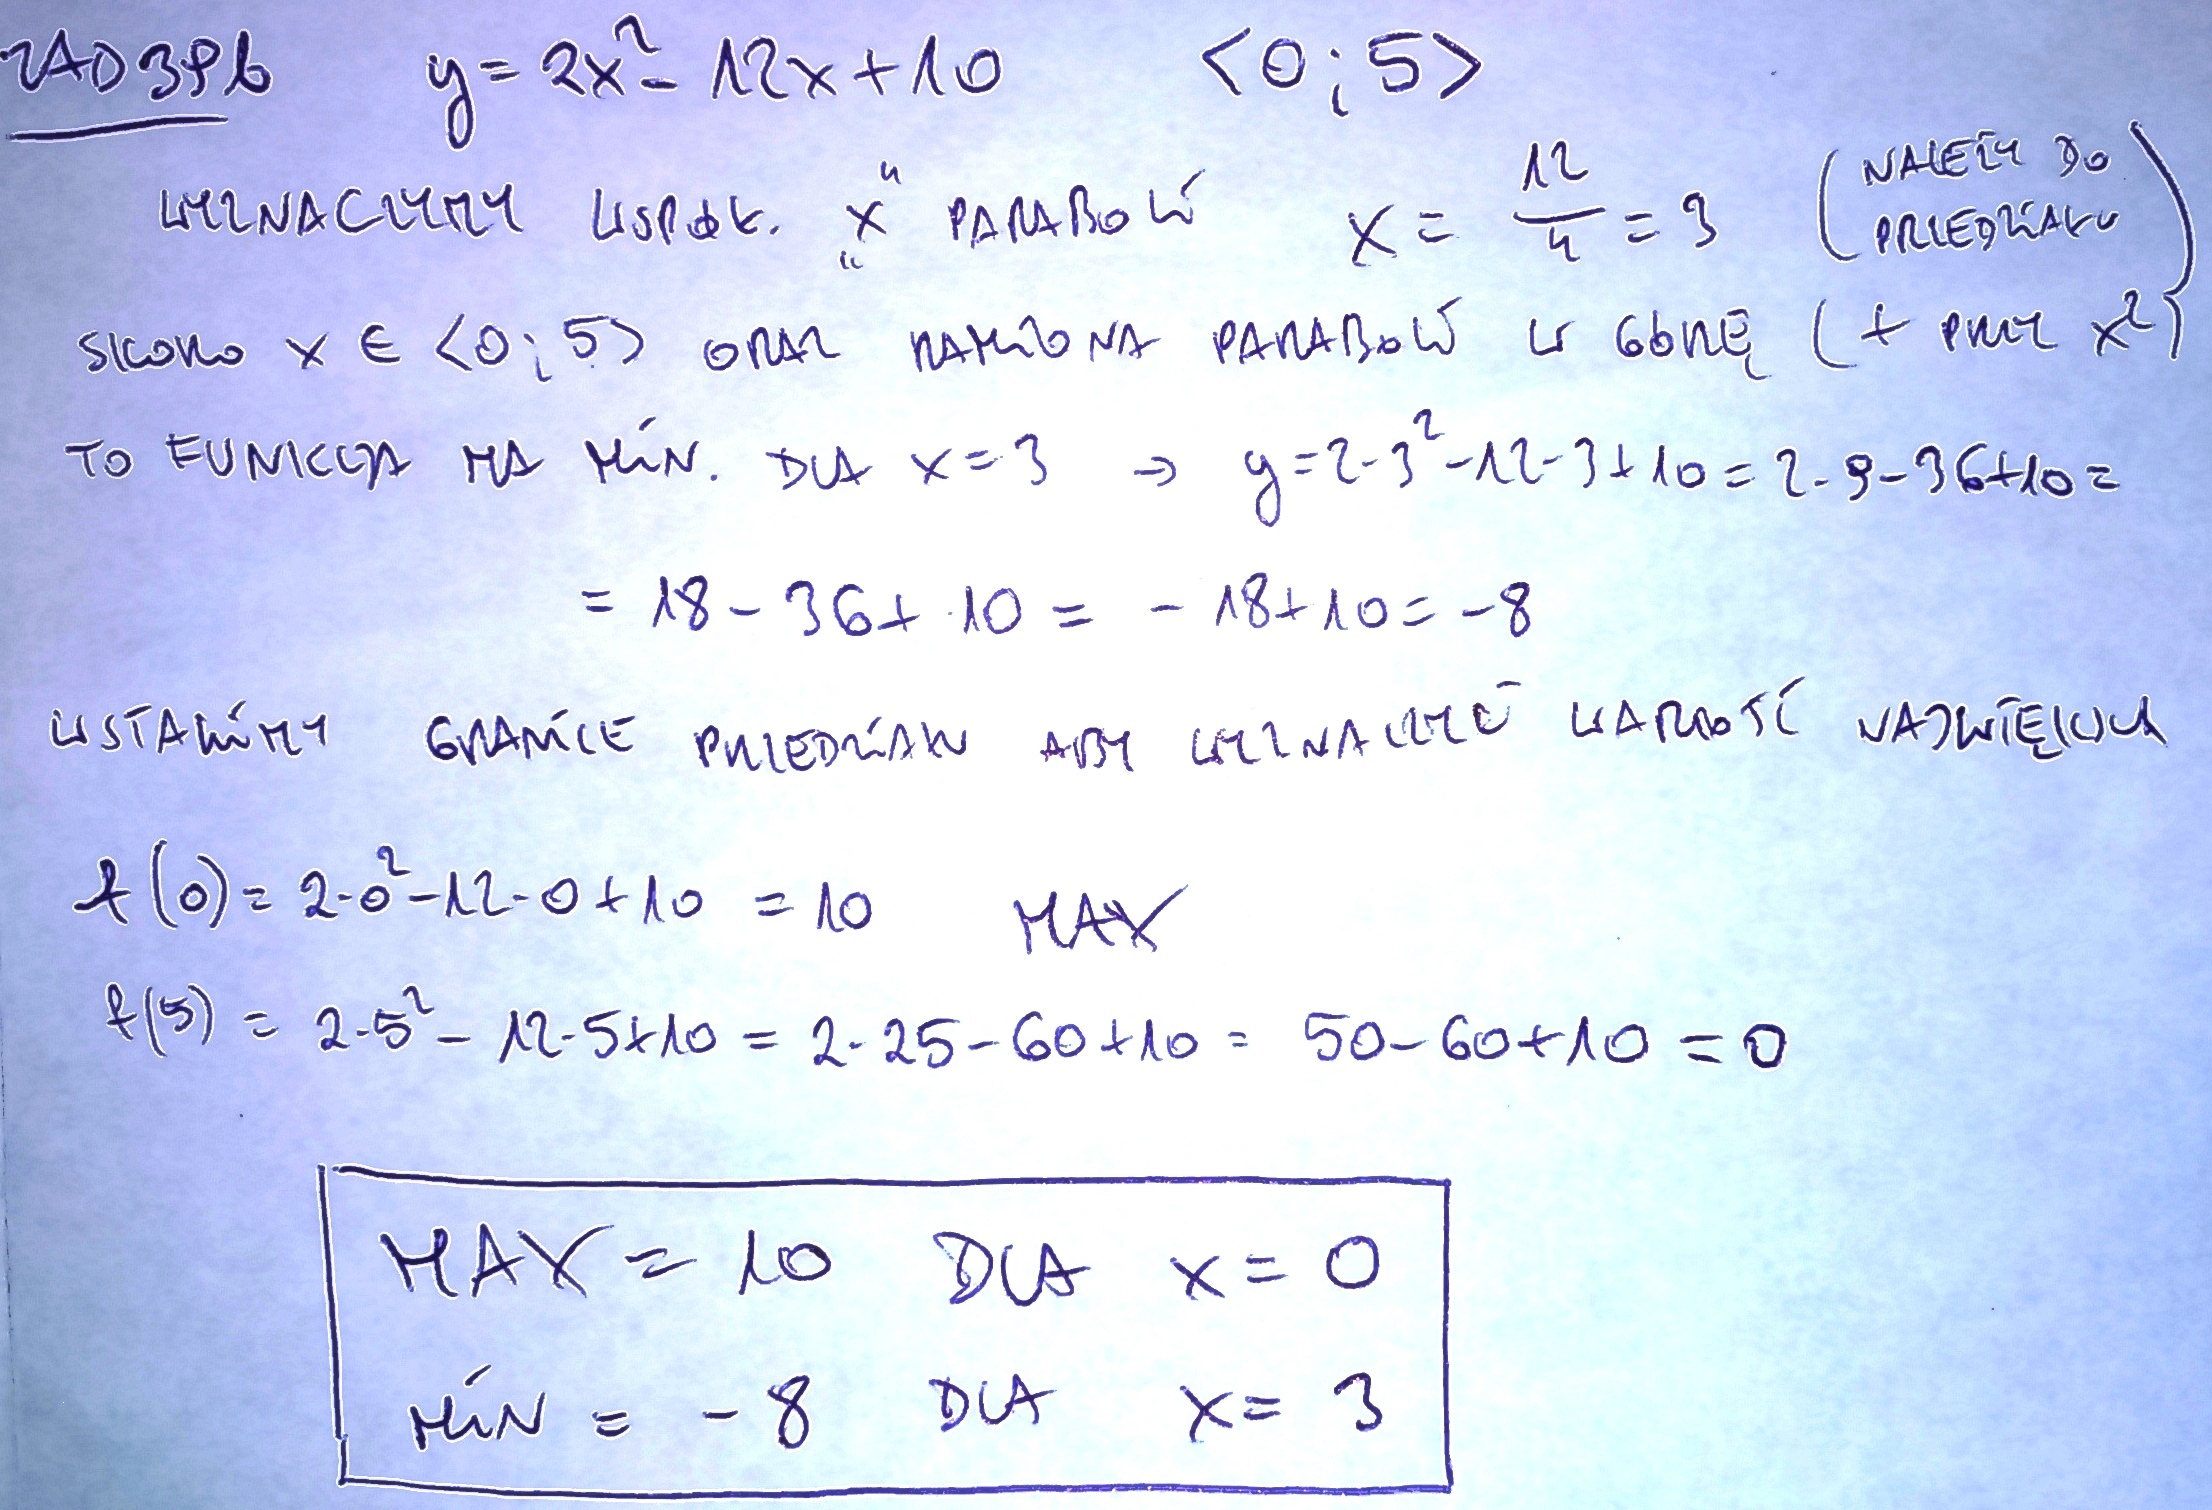 ZAD 39b y = 2x² - 12x + 10 <0;5>
WYZNACZYMY WSPÓŁ. „x" PARABOLI x = 12/4 = 3 (NALEŻY DO PRZEDZIAŁU)
SKORO x ∈ <0;5> ORAZ RAMIONA PARABOLI W GÓRĘ (+ PRZY x²)
TO FUNKCJA MA MIN. DLA x = 3 → y = 2·3² - 12·3 + 10 = 2·9 - 36 + 10 =
= 18 - 36 + 10 = - 18 + 10 = - 8
WSTAWIMY GRANICE PRZEDZIAŁU ABY WYZNACZYĆ WARTOŚĆ NAJWIĘKSZĄ
f(0) = 2·0² - 12·0 + 10 = 10 MAX
f(5) = 2·5² - 12·5 + 10 = 2·25 - 60 + 10 = 50 - 60 + 10 = 0
MAX = 10 DLA x = 0
MIN = - 8 DLA x = 3